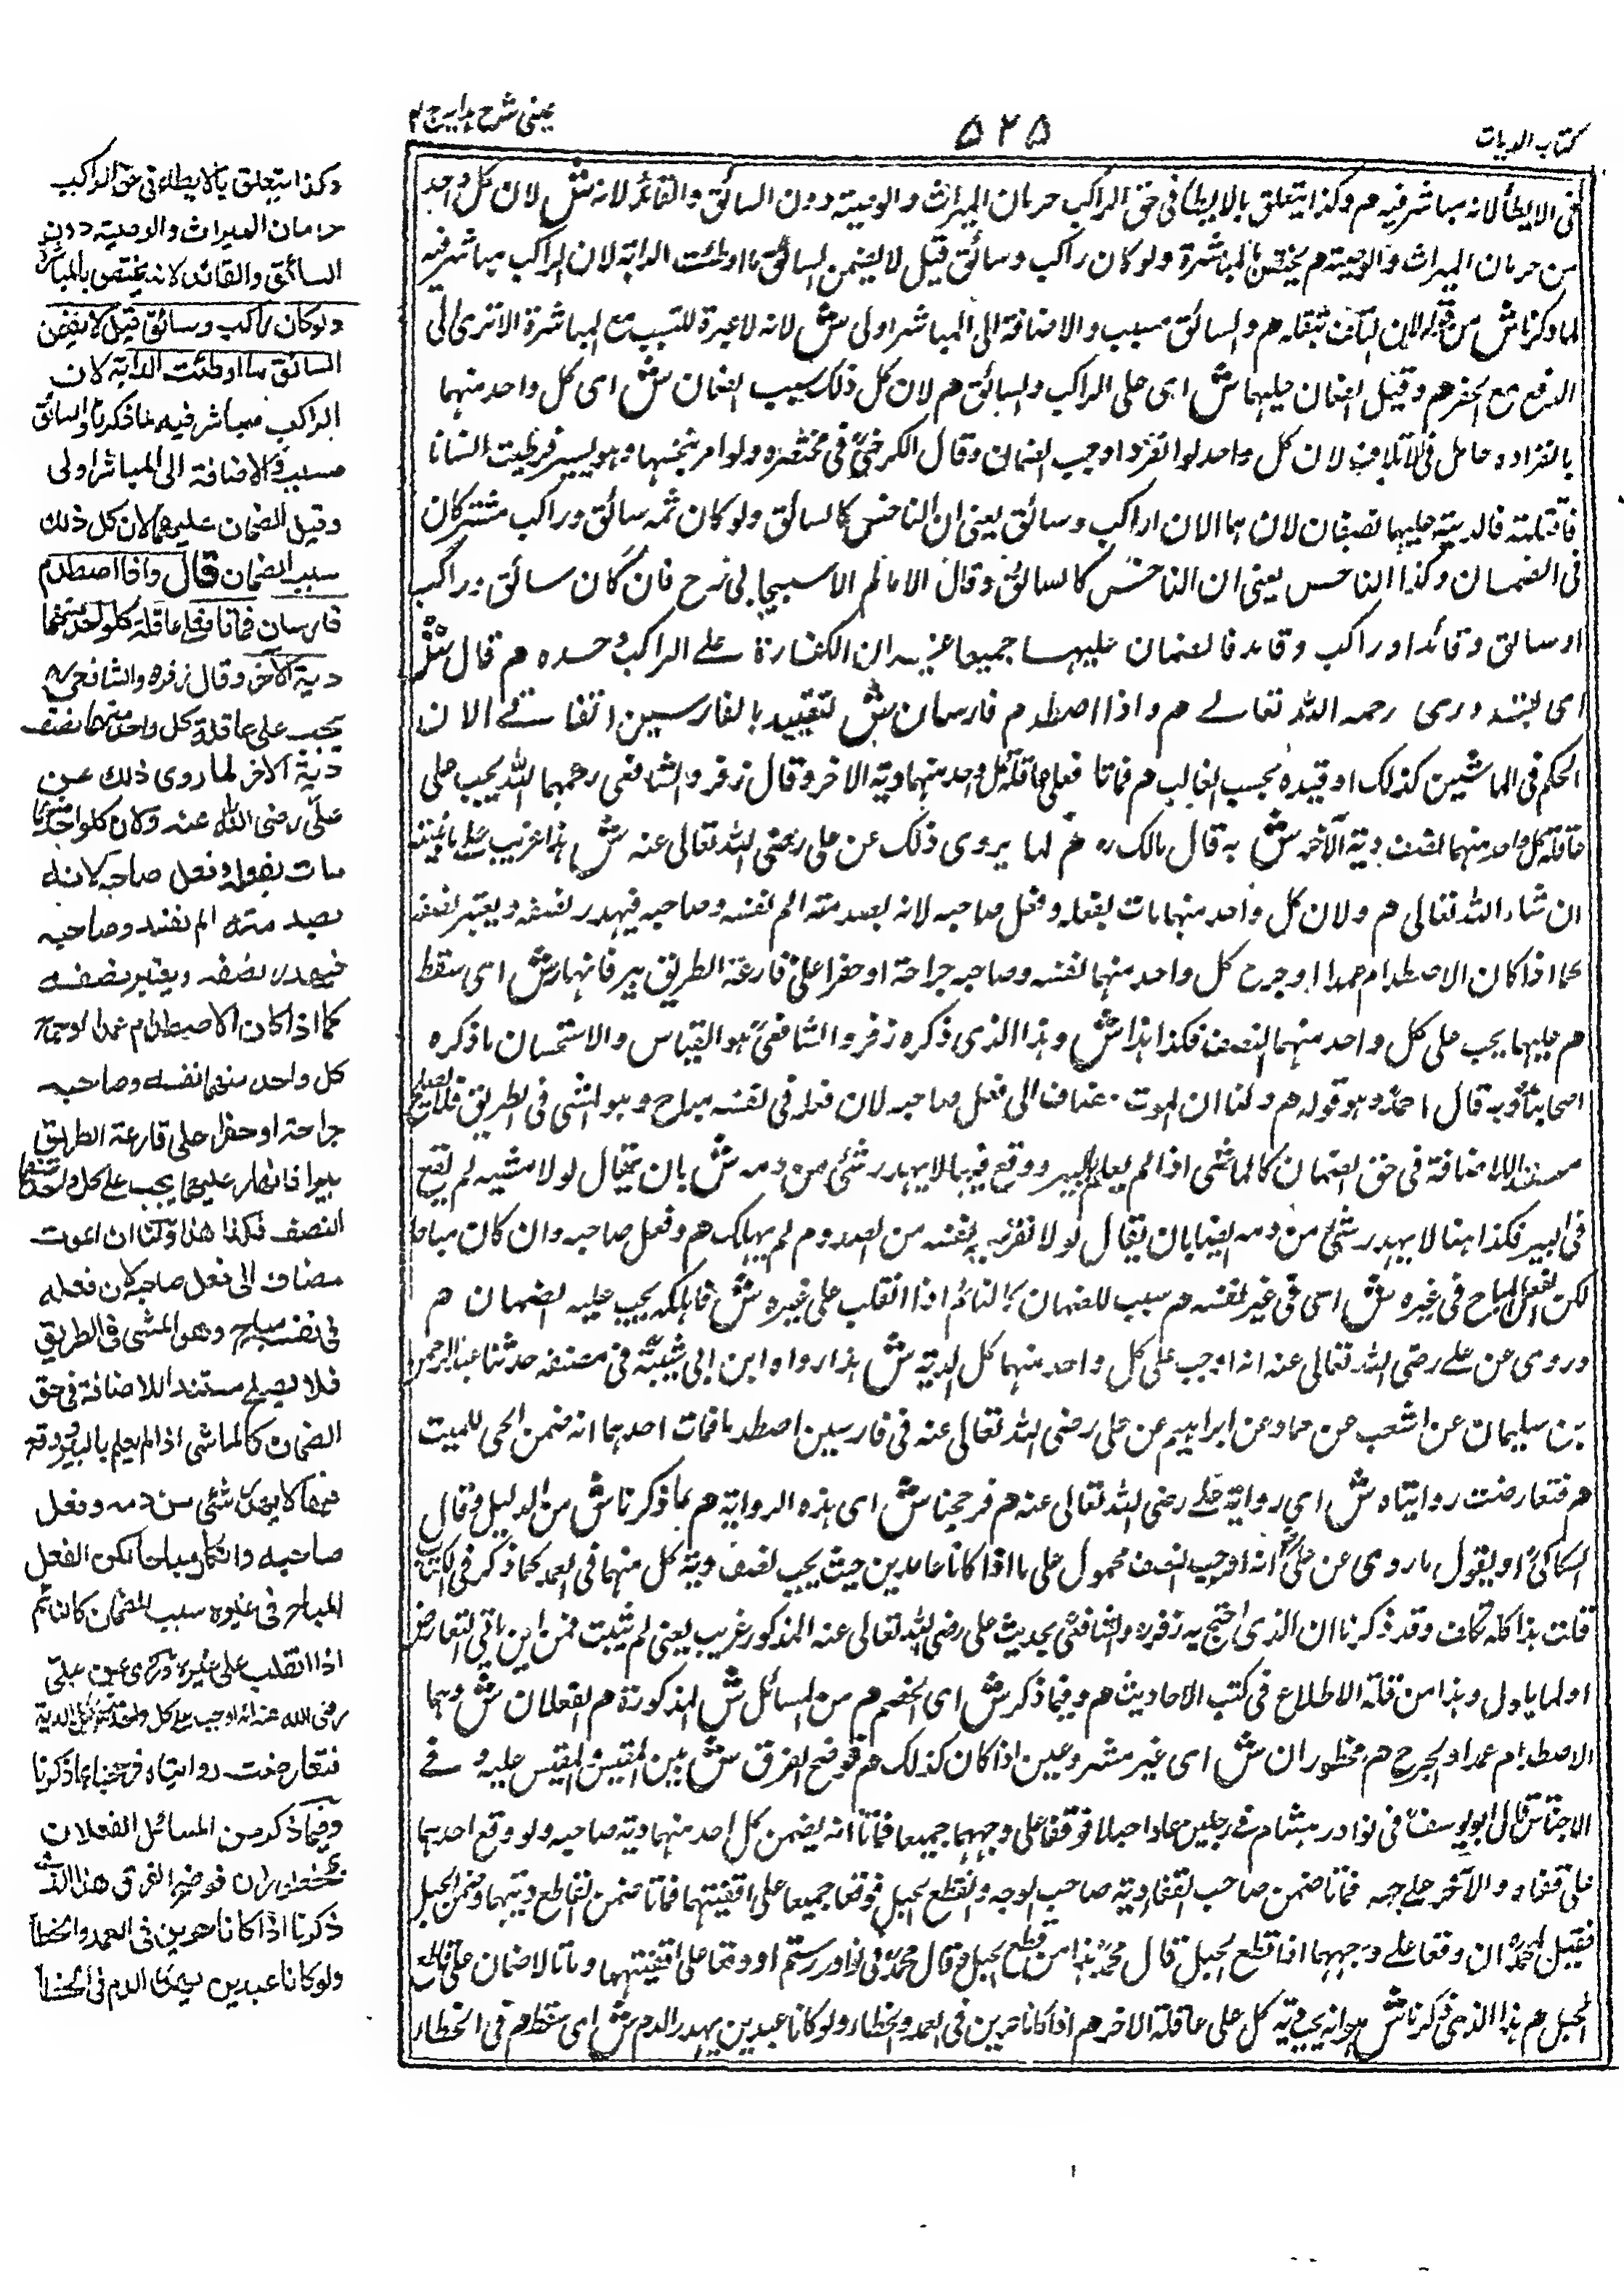 كتاب الديات
۵۲۵
عينى شرح هدايه ج ۴
فى الايطاء لانه مباشر فيه هم وكذا يتعلق بالايطاء فى حق الراكب حرمان الميراث والوصية دون السائق والقائد لانه ش لان كل واحد
من حرمان الميراث والوصية هم يختص بالمباشرة ولو كان راكب وسائق قيل لا يضمن السائق ما اوطئت الدابة لان الراكب مباشر فيه
لما ذكرنا ش من قوله لان التلف بثقله هم والسائق مسبب والاضافة الى المباشر اولى ش لانه لا عبرة للتسبب مع المباشرة الا ترى الى
الدفع مع الحفر هم وقيل الضمان عليهما ش اى على الراكب والسائق هم لان كل ذلك سبب الضمان ش اى كل واحد منهما
بانفراده عامل فى الاتلاف لان كل واحد لو انفرد اوجب الضمان وقال الكرخى فى مختصره ولو امر بنخسها وهو يسير فوطئت انسانا
فقتلته فالدية عليهما نصفان لان هما الان راكب وسائق يعنى ان الناخس كالسائق ولو كان ثمه سائق وراكب مشتركان
فى الضمان وكذا الناخس يعنى ان الناخس كالسائق وقال الامام الاسبيجابى رح فان كان سائق وراكب
او سائق وقائد او راكب وقائد فالضمان عليهما جميعا غير ان الكفارة على الراكب وحده هم قال ش
اى القدورى رحمه الله تعالى هم واذا اصطدم فارسان ش تقييد بالفارسين اتفاقى الا ان
الحكم فى الماشيين كذلك او قيده بحسب الغالب هم فماتا فعلى عاقلة كل واحد منهما دية الاخر وقال زفر والشافعى رحمهما الله يجب على
عاقلة كل واحد منهما نصف دية الآخر ش به قال مالك ره هم لما يروى ذلك عن على رضى الله تعالى عنه ش هذا غريب على ما نبينه
ان شاء الله تعالى هم ولان كل واحد منهما مات بفعله وفعل صاحبه لانه بصدمته الم نفسه وصاحبه فيهدر نصفه ويعتبر نصفه
كما اذا كان الاصطدام عمدا او جرح كل واحد منهما نفسه وصاحبه جراحة او حفرا على قارعة الطريق بيرا فانهار ش اى سقط
هم عليهما يجب على كل واحد منهما النصف فكذا هذا ش وهذا الذى ذكره زفر والشافعى هو القياس والاستحسان ما ذكره
اصحابنا وبه قال احمد وهو قوله هم ولنا ان الموت مضاف الى فعل صاحبه لان فعله فى نفسه مباح وهو المشى فى الطريق فلا يصلح
مستندا للاضافة فى حق الضمان كالماشى اذا لم يعلم بالبير ووقع فيها لا يهدر شئ من دمه ش بان يقال لولا مشيه لم يقع
فى البير فكذا هنا لا يهدر شئ من دمه ايضا بان يقال لولا نفسه من الصدوم لم يهلك هم وفعل صاحبه وان كان مباحا
لكن الفعل المباح فى غيره ش اى فى غير نفسه هم سبب للضمان كالنائم اذا انقلب على غيره ش فاهلكه يجب عليه الضمان هم
وروى عن على رضى الله تعالى عنه انه اوجب على كل واحد منهما كل الدية ش هذا رواه ابن ابى شيبة فى مصنفه حدثنا عبد الرحمن
بن سليمان عن اشعب عن حماد عن ابراهيم عن على رضى الله تعالى عنه فى فارسين اصطدما فمات احدهما انه ضمن الحى للميت
هم فتعارضت روايتاه ش اى رواية على رضى الله تعالى عنه هم فرجحنا ش اى هذه الرواية هم بما ذكرنا ش من الدليل وقال
السكاكى او يقول ما روى عن على انه اوجب النصف محمول على ما اذا كانا عامدين حيث يجب نصف دية كل منهما فى العمد كما ذكر فى الكتاب
قلت هذا كله تكلف وقد ذكرنا ان الذى احتج به زفر والشافعى بحديث على رضى الله تعالى عنه المذكور غريب يعنى لم يثبت فمن اين ياتى التعارض
او لما ياول وهذا من قلة الاطلاع فى كتب الاحاديث هم وفيما ذكر ش اى الخصم هم من المسائل ش المذكورة هم الفعلان ش وهما
الاصطدام عمدا والجرح هم محظوران ش اى غير مشروعين اذا كان كذلك هم فوضح الفرق ش بين المقيس والمقيس عليه و فى
الاجناس قال ابو يوسف فى نوادر هشام فى رجلين مدا حبلا فوقعا على وجههما جميعا فماتا انه يضمن كل واحد منهما دية صاحبه ولو وقع احدهما
على قفاه والآخر على وجهه فماتا ضمن صاحب القفا دية صاحب الوجه وانقطع الحبل فوقعا جميعا على اقفيتهما فماتا ضمن القاطع ديتهما وضمن الحبل
فقيل لمحمد ان وقعا على وجههما اذا قطع الحبل قال محمد هذا من قطع الحبل وقال محمد فى نوادر رستم لو وقعا على اقفيتهما وماتا لا ضمان على قاطع
الحبل هم هذا الذى ذكرنا ش هو انه يجب دية كل على عاقلة الاخر هم اذا كانا حرين فى العمد والخطاء ولو كانا عبدين يهدر الدم ش اى سقط هم فى الخطاء
وكذا يتعلق بالايطاء فى حق الراكب
حرمان الميراث والوصية دون
السائق والقائد لانه يختص بالمباشرة
ولو كان راكب وسائق قيل لا يضمن
السائق ما اوطئت الدابة لان
الراكب مباشر فيه لما ذكرنا والسائق
مسبب والاضافة الى المباشر اولى
وقيل الضمان عليهما لان كل ذلك
سبب الضمان قال واذا اصطدم
فارسان فماتا فعلى عاقلة كل واحد منهما
دية الآخر وقال زفر والشافعى ره
يجب على عاقلة كل واحد منهما نصف
دية الآخر لما روى ذلك عن
على رضى الله عنه ولان كل واحد منهما
مات بفعله وفعل صاحبه لانه
بصدمته الم نفسه وصاحبه
فيهدر نصفه ويعتبر نصفه
كما اذا كان الاصطدام عمدا او جرح
كل واحد منهما نفسه وصاحبه
جراحة او حفرا على قارعة الطريق
بيرا فانهار عليهما يجب على كل واحد منهما
النصف فكذا هذا ولنا ان الموت
مضاف الى فعل صاحبه لان فعله
فى نفسه مباح وهو المشى فى الطريق
فلا يصلح مستندا للاضافة فى حق
الضمان كالماشى اذا لم يعلم بالبير ووقع
فيها لا يهدر شئ من دمه وفعل
صاحبه وان كان مباحا لكن الفعل
المباح فى غيره سبب للضمان كالنائم
اذا انقلب على غيره وروى عن على
رضى الله عنه انه اوجب على كل واحد منهما كل الدية
فتعارضت روايتاه فرجحنا بما ذكرنا
وفيما ذكر من المسائل الفعلان
محظوران فوضح الفرق هذا الذى
ذكرنا اذا كانا حرين فى العمد والخطأ
ولو كانا عبدين يهدر الدم فى الخطأ